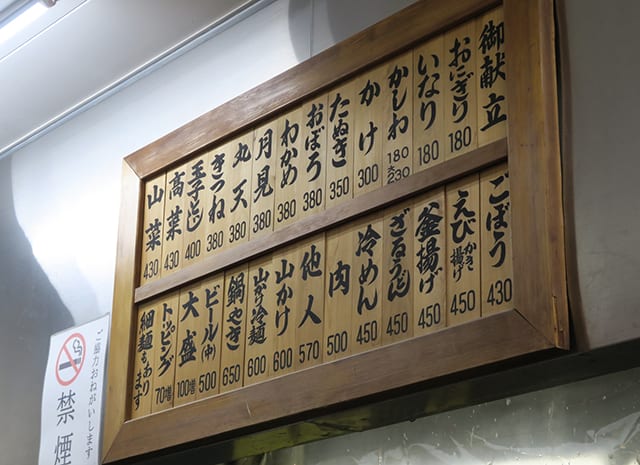 御献立
おにぎり 180
いなり 180
かしわ 180 大230
かけ 300
たぬき 350
おぼろ 380
わかめ 380
月見 380
丸天 380
きつね 380
玉子とじ 400
高菜 430
山菜 430
ごぼう 430
えび かき揚げ 450
釜揚げ 450
ざるうどん 450
冷めん 450
肉 500
他人 570
山かけ 600
山かけ冷麺 600
鍋やき 650
ビール(中) 500
大盛 100増
トッピング 70増
細麺もあります
ご協力おねがいします
禁煙